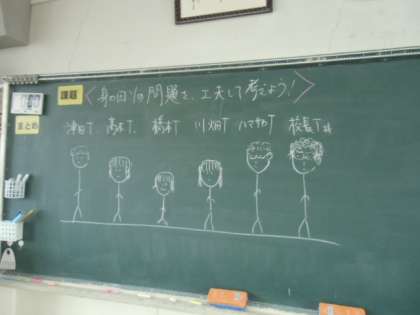 課題
〈身の回りの問題を、工夫して考えよう!〉
まとめ
津田T 高木T. 橋本T 川畑T ハマサカT 校長T